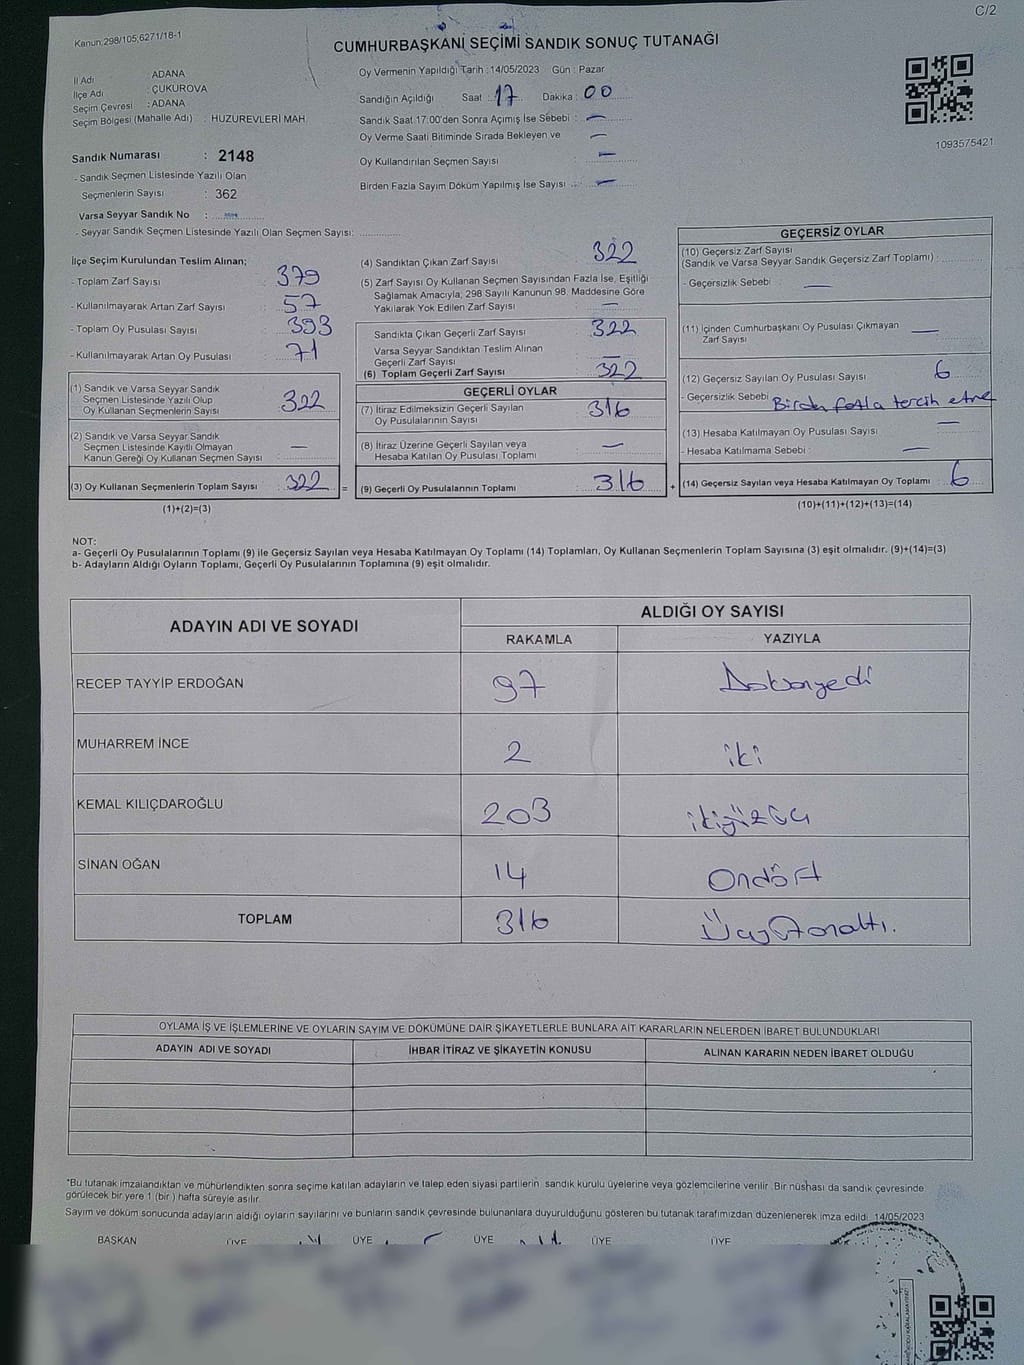 C/2
Kanun;298/105;6271/18-1
CUMHURBAŞKANI SEÇİMİ SANDIK SONUÇ TUTANAĞI
İl Adı : ADANA
İlçe Adı : ÇUKUROVA
Seçim Çevresi : ADANA
Seçim Bölgesi (Mahalle Adı) : HUZUREVLERİ MAH.
Sandık Numarası : 2148
- Sandık Seçmen Listesinde Yazılı Olan
Seçmenlerin Sayısı : 362
Varsa Seyyar Sandık No :
- Seyyar Sandık Seçmen Listesinde Yazılı Olan Seçmen Sayısı:
Oy Vermenin Yapıldığı Tarih :14/05/2023 Gün : Pazar
Sandığın Açıldığı Saat : 17 Dakika : 00
Sandık Saat 17:00'den Sonra Açımış İse Sebebi : —
Oy Verme Saati Bitiminde Sırada Bekleyen ve —
Oy Kullandırılan Seçmen Sayısı : —
Birden Fazla Sayım Döküm Yapılmış İse Sayısı : —
1093575421
İlçe Seçim Kurulundan Teslim Alınan;
- Toplam Zarf Sayısı : 379
- Kullanılmayarak Artan Zarf Sayısı : 57
- Toplam Oy Pusulası Sayısı : 393
- Kullanılmayarak Artan Oy Pusulası : 71
(1) Sandık ve Varsa Seyyar Sandık
Seçmen Listesinde Yazılı Olup
Oy Kullanan Seçmenlerin Sayısı : 322
(2) Sandık ve Varsa Seyyar Sandık
Seçmen Listesinde Kayıtlı Olmayan
Kanun Gereği Oy Kullanan Seçmen Sayısı : —
(3) Oy Kullanan Seçmenlerin Toplam Sayısı : 322 =
(1)+(2)=(3)
(4) Sandıktan Çıkan Zarf Sayısı : 322
(5) Zarf Sayısı Oy Kullanan Seçmen Sayısından Fazla İse, Eşitliği
Sağlamak Amacıyla, 298 Sayılı Kanunun 98. Maddesine Göre
Yakılarak Yok Edilen Zarf Sayısı : —
Sandıkta Çıkan Geçerli Zarf Sayısı : 322
Varsa Seyyar Sandıktan Teslim Alınan
Geçerli Zarf Sayısı : —
(6) Toplam Geçerli Zarf Sayısı : 322
GEÇERLİ OYLAR
(7) İtiraz Edilmeksizin Geçerli Sayılan
Oy Pusulalarının Sayısı : 316
(8) İtiraz Üzerine Geçerli Sayılan veya
Hesaba Katılan Oy Pusulası Toplamı : —
(9) Geçerli Oy Pusulalarının Toplamı : 316 +
GEÇERSİZ OYLAR
(10) Geçersiz Zarf Sayısı
(Sandık ve Varsa Seyyar Sandık Geçersiz Zarf Toplamı) :
- Geçersizlik Sebebi : —
(11) İçinden Cumhurbaşkanı Oy Pusulası Çıkmayan
Zarf Sayısı : —
(12) Geçersiz Sayılan Oy Pusulası Sayısı : 6
- Geçersizlik Sebebi : Birden fazla tercih etme
(13) Hesaba Katılmayan Oy Pusulası Sayısı : —
- Hesaba Katılmama Sebebi : —
(14) Geçersiz Sayılan veya Hesaba Katılmayan Oy Toplamı : 6
(10)+(11)+(12)+(13)=(14)
NOT:
a- Geçerli Oy Pusulalarının Toplamı (9) ile Geçersiz Sayılan veya Hesaba Katılmayan Oy Toplamı (14) Toplamları, Oy Kullanan Seçmenlerin Toplam Sayısına (3) eşit olmalıdır. (9)+(14)=(3)
b- Adayların Aldığı Oyların Toplamı, Geçerli Oy Pusulalarının Toplamına (9) eşit olmalıdır.
ADAYIN ADI VE SOYADI ALDIĞI OY SAYISI
RAKAMLA YAZIYLA
RECEP TAYYİP ERDOĞAN 97 Doksanyedi
MUHARREM İNCE 2 iki
KEMAL KILIÇDAROĞLU 203 ikiyüzüç
SİNAN OĞAN 14 Ondört
TOPLAM 316 Üçyüzonaltı.
OYLAMA İŞ VE İŞLEMLERİNE VE OYLARIN SAYIM VE DÖKÜMÜNE DAİR ŞİKAYETLERLE BUNLARA AİT KARARLARIN NELERDEN İBARET BULUNDUKLARI
ADAYIN ADI VE SOYADI İHBAR İTİRAZ VE ŞİKAYETİN KONUSU ALINAN KARARIN NEDEN İBARET OLDUĞU
*Bu tutanak imzalandıktan ve mühürlendikten sonra seçime katılan adayların ve talep eden siyasi partilerin sandık kurulu üyelerine veya gözlemcilerine verilir. Bir nüshası da sandık çevresinde
görülecek bir yere 1 (bir ) hafta süreyle asılır.
Sayım ve döküm sonucunda adayların aldığı oyların sayılarını ve bunların sandık çevresinde bulunanlara duyurulduğunu gösteren bu tutanak tarafımızdan düzenlenerek imza edildi. 14/05/2023
BAŞKAN ÜYE ÜYE ÜYE ÜYE ÜYE